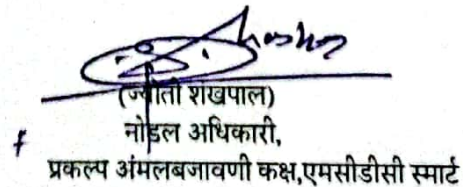 (ज्योती शंखपाल)
नोडल अधिकारी,
प्रकल्प अंमलबजावणी कक्ष,एमसीडीसी स्मार्ट